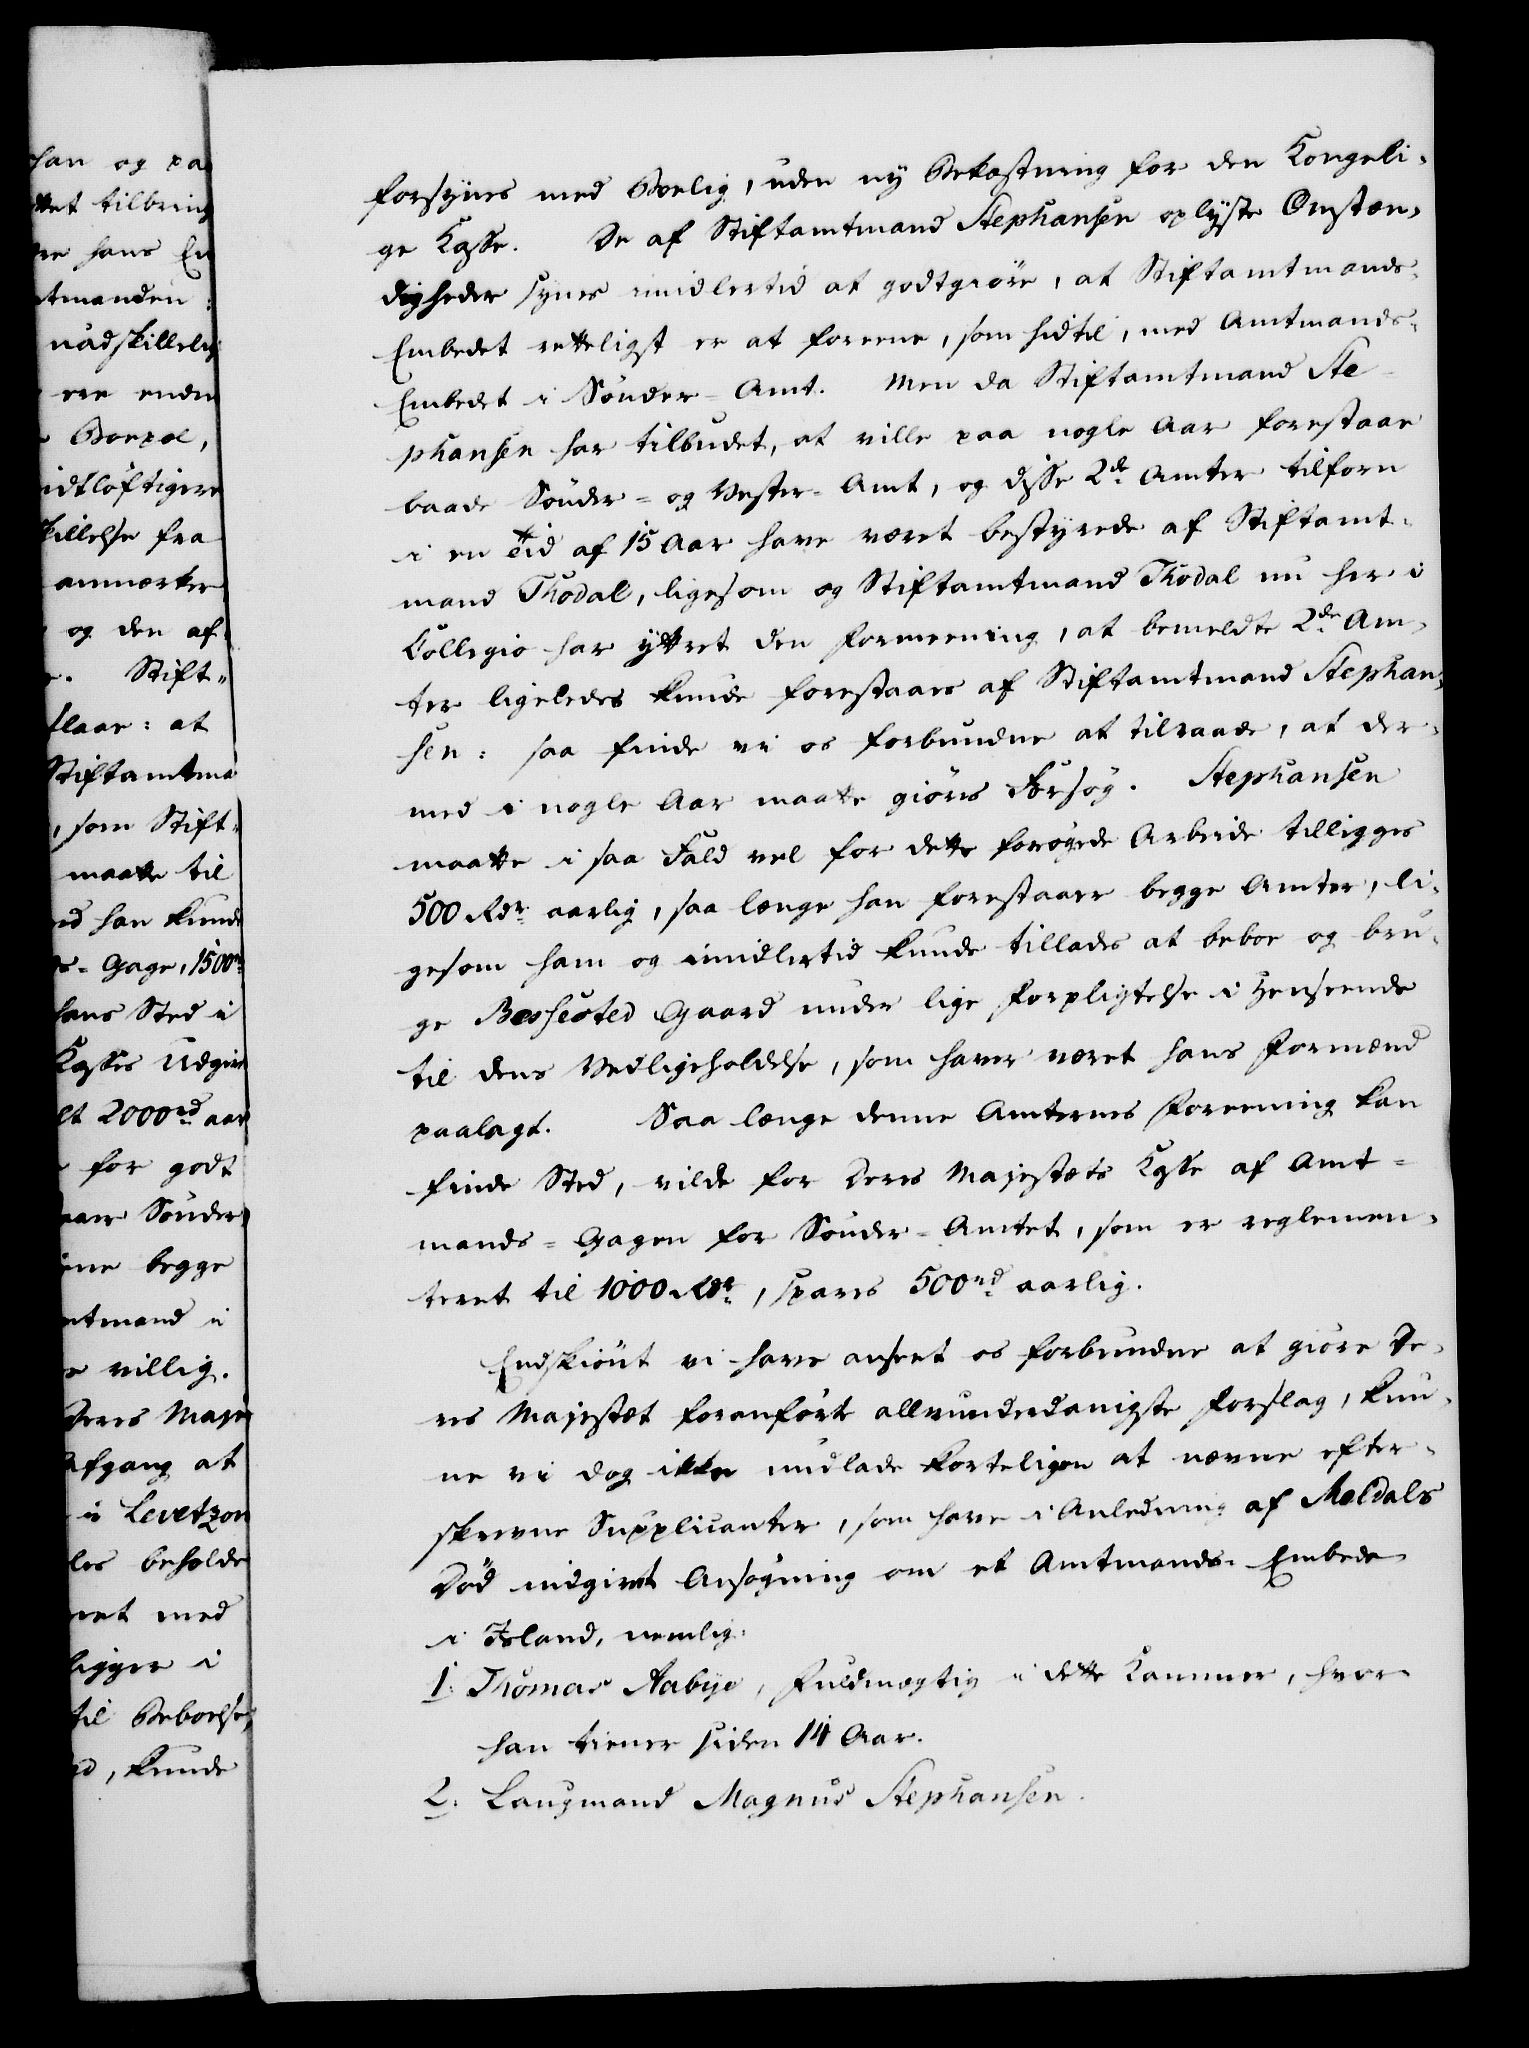 han og paa
ttet tilbring
re hans En
tmanden:
uadskillelig
ere endnu
Boepæl,
idtløftigere
killelse fra
anmærker
og den af¬
e. Stift¬
slaar: at
Stiftamtma
, som Stift¬
maatte til
nd han kunde
s-Gage, 1500rd
hans Sted i
Kasses Udgivt
lt 2000rd aar
for godt
aar Sønder
ine begge
mtmand i
e villig.
Deres Maje
Afgang at
i Levetzon
les beholde
net med
ligger i
til Beboelse,
ed, kunde
forsynes med Boelig, uden ny Bekostning for den Kongeli¬
ge Kasse. De af Stiftamtmand Stephansen oplyste Omstæn¬
digheder synes imidlertid at godtgiöre, at Stiftamtmands¬
Embedet retteligst er at foreene, som hidtil, med Amtmands¬
Embedet i Sönder-Amt. Men da Stiftamtmand Ste¬
phansen har tilbudet, at ville paa nogle Aar forestaae
baade Sönder- og Vester-Amt, og disse 2de Amter tilforn
i en Tid af 15 Aar have været bestyrede af Stiftamt¬
mand Thodal, ligesom og Stiftamtmand Thodal nu her i
Collegio har yttret den Formeening, at bemeldte 2de Am¬
ter ligeledes kunde forestaaes af Stiftamtmand Stephan¬
sen: saa finde vi os forbundne at tilraade, at der¬
med i nogle Aar maatte giöres Forsög. Stephansen
maatte i saa Fald vel for dette forögede Arbeide tillægges
500 Rdr aarlig, saa længe han forestaaer begge Amter, li¬
gesom ham og imidlertid kunde tillades at beboe og bru¬
ge Bessested Gaard under lige Forpligtelse i Henseende
til dens Vedligeholdelse, som haver været hans Formænd
paalagt. Saa længe denne Amternes Foreening kan
finde Sted, vilde for Deres Majestæts Kasse af Amt¬
mands-Gagen for Sönder-Amtet, som er reglemen¬
teret til 1000 Rdr, spares 500rd aarlig.
Endskiönt vi have anseet os forbundne at giöre De¬
res Majestæt foranförte allerunderdanigste Forslag, kun¬
ne vi dog ikke undlade korteligen at nævne efter¬
skrevne Supplicanter, som have i Anledning af Meldals
Död indgivet Ansögning om et Amtmands-Embede
i Island, nemlig:
1. Thomas Aabye, Fuldmægtig i dette Kammer, hvor
han tiener siden 14 Aar.
2. Laugmand Magnus Stephansen.